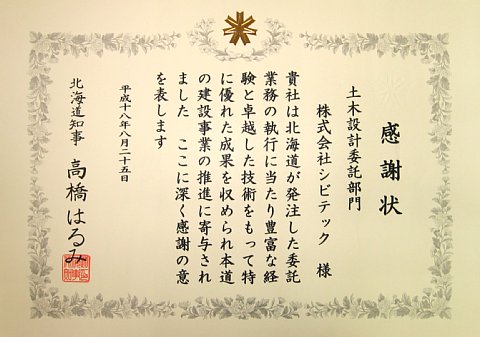 感謝状
土木設計委託部門
株式会社シビテック 様
貴社は北海道が発注した委託
業務の執行に当たり豊富な経
験と卓越した技術をもって特
に優れた成果を収められ本道
の建設事業の推進に寄与され
ました ここに深く感謝の意
を表します
平成十八年八月二十五日
北海道知事 高橋はるみ